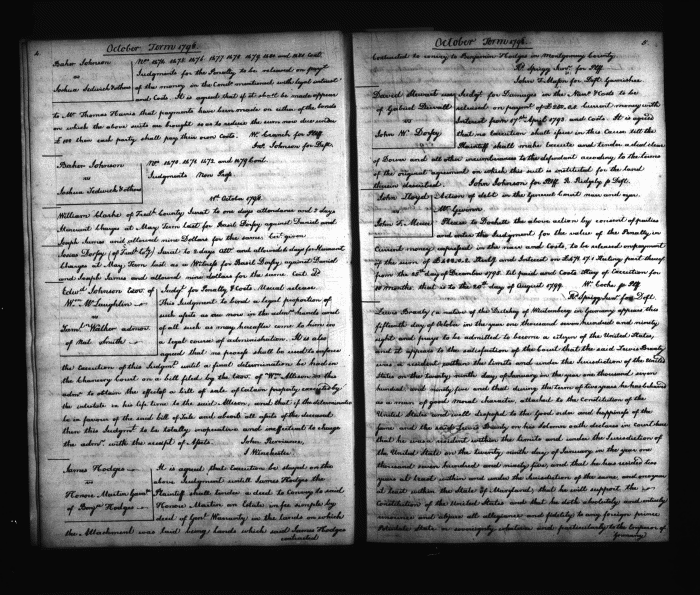 4
October Term 1798.
Baker Johnson
vs
Joshua Tedwick & others
Nos. 1475 1476 1477 1478 1479 1480 and 1481 Cont.
Judgments for the Penalty to be released on paymt
of the money in the Condn. mentioned with legal interest
and Costs. It is agreed that if it shall be made appear
to Mr. Thomas Harris that payments have been made on either of the bonds
on which the above suits are brought so as to reduce the sum now due under
£100 then each party shall pay their own Costs. W. Craik for Pltff
Jno. Johnson for Deft.
Baker Johnson
vs
Joshua Tedwick & others
Nos. 1470. 1471 1472 and 1474 Cont.
Judgments Non Pros.
15th October 1798.
William Clarke of Fredk. County Senat to one days attendance and 2 days
Itinerant Charges at May Term last for Basil Dorsey against Daniel and
Joseph James and allowed nine Dollars for the same Crt. given
Josias Dorsey (of Fredk. Coty.) Senat to 2 days Attn. and allowed 2 days for Itinerant
Charges at May Term last as a Witness for Basil Dorsey against Daniel
and Joseph James and allowed nine dollars for the same. Crt. Do
Edwd. Johnson Exor. of
Wm. McLaughlin
vs
Saml. Walker admor.
of Nat Smith
Judgt. for Penalty & Costs Usual release
This Judgment to bind a legal proportion of
such assets as are now in the admrs. hands and
of all such as may hereafter come to him in
a legal course of administration. It is also
agreed that no process shall be used to enforce
the execution of this Judgmt. until a final determination be had in
the Chancery Court on a bill filed by the Exor. of Wm. Allison vs this
admor. to obtain the effects of a bill of sale of certain property executed by
the intestate in his life time to the said Allison, and that if the determination
be in favour of the said bill of Sale and absorb all assets of the deceased
then this Judgment to be totally inoperative and ineffectual to charge
the admr. with the receipt of Assets.
John Purviance,
J Winchester
James Hodges
vs
Honore Martin Garnt.
of Benjn. Hodges
It is agreed that Execution be stayed on the
above Judgment untill James Hodges the
Plaintiff shall tender a deed to Convey to said
Honore Martin an Estate in fee simple by
deed of Genl. Warranty in the lands on which
the Attachment was laid being lands which said James Hodges
contracted
October Term 1798.
5.
contracted to convey to Benjamin Hodges in Montgomery County.
Rt. Sprigg Junr. for Pltff
John T. Mason for Deft. Garnishee
David Stewart use
of Gabriel Duvall
vs
John W. Dorsey
Judgt. for Damages in the Narr & Costs to be
released on payment of £ current money with
Interest from 17th April 1793 and Costs. It is agreed
that no execution shall issue in this Case till the
Plaintiff shall make execute and tender a deed clear
of Dower and all other incumbrances to the defendant according to the terms
of the original agreement on which this suit is instituted for the land
therein described. John Johnson for Pltff R. Ridgely p Deft.
John Lloyd
vs
John F. Mercer
Action of debt in the General Court
Mr. Gwinn
Please to Docket the above action by consent of parties
and enter this Judgment for the value of the Penalty in
Current money expressed in the narr and Costs, to be released on payment
of the sum of Sterlg. and Interest on Sterling part thereof
from the 25th of December 1798 til paid and Costs Stay of Execution for
10 Months, that is to the 20th day of August 1799. W. Cooke, p Pltff
Rt. Sprigg Junr. for Deft.
Lewis Brantz (a native of the Dutchey of Wirtemberg in Germany) appears this
fifteenth day of October in the year one thousand seven hundred and ninety
eight and prays to be admitted to become a citizen of the United States,
and it appears to the satisfaction of the Court that the said Lewis Brantz
was a resident within the limits and under the Jurisdiction of the United
States on the twenty ninth day of January in the year one thousand seven
hundred and ninety five and that during the term of two years he has behaved
as a man of good Moral character, attached to the Constitution of the
United States and well disposed to the good order and happiness of the
same and the said Lewis Brantz on his Solemn oath declares in Court here
that he was resident within the limits and under the Jurisdiction of
the United States on the twenty ninth day of January in the year one
thousand seven hundred and ninety five, and that he has resided two
years at least within and under the Jurisdiction of the same, and one year
at least within the State of Maryland, that he will support the
Constitution of the United States and that he doth absolutely and intirely
renounce and abjure all allegiance and fidelity to any foreign prince
Potentate State or sovereignty whatever and particularly to the Emperor of
Germany